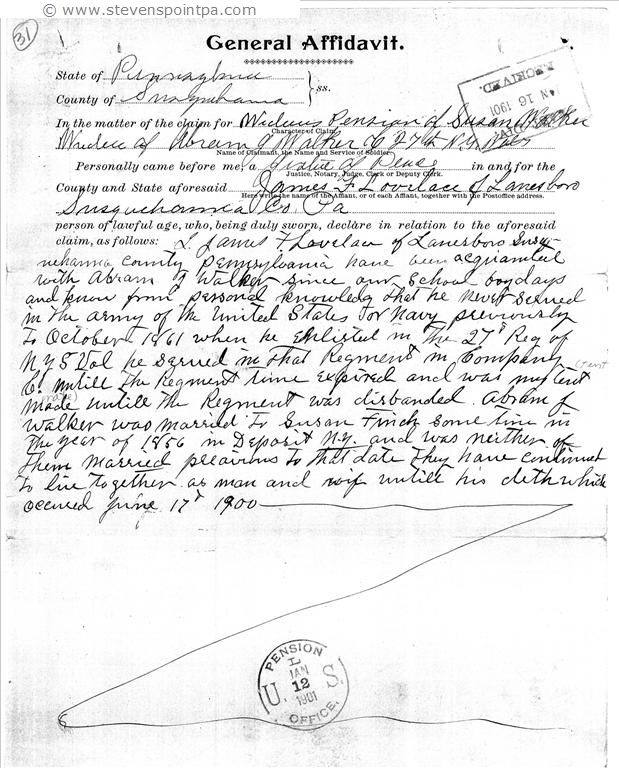 © www.stevenspointpa.com
31
General Affidavit.
State of Pennsylvania
County of Susquehanna
} ss.
RECEIVED
JAN 16 1901
In the matter of the claim for Widows Pension of Susan Walker
Character of Claim.
Widow of Abram J Walker C 27th N.Y. Vols
Name of Claimant, the Name and Service of Soldier.
Personally came before me, a Justice of Peace in and for the
Justice, Notary, Judge, Clerk or Deputy Clerk.
County and State aforesaid James F Lovelace of Lanesboro
Here write the name of the Affiant, or of each Affiant, together with the Postoffice address.
Susquehanna Co. Pa
person of lawful age, who, being duly sworn, declare in relation to the aforesaid
claim, as follows: I, James F Lovelace of Lanesboro Susq
uehanna county Pennsylvania have been acquainted
with Abram J Walker since our School boydays
and know from personal knowledg that he never served
in the army of the United States Nor Navy previously
to October 1861 when he Enlisted in the 27th Reg of
N.Y.S Vol he served in that Regment in Company
C. untill the Regment time expired and was my tent
(tent
made untill the Regment was disbanded. Abram J
mate)
Walker was married to Susan Finch some time in
the year of 1856 in Deposit N.Y. and was neither of
them married preaious to that date they have continued
to live together as man and wife untill his deth which
occured June 17th 1900
PENSION
JAN
U. 12 S.
1901
OFFICE.